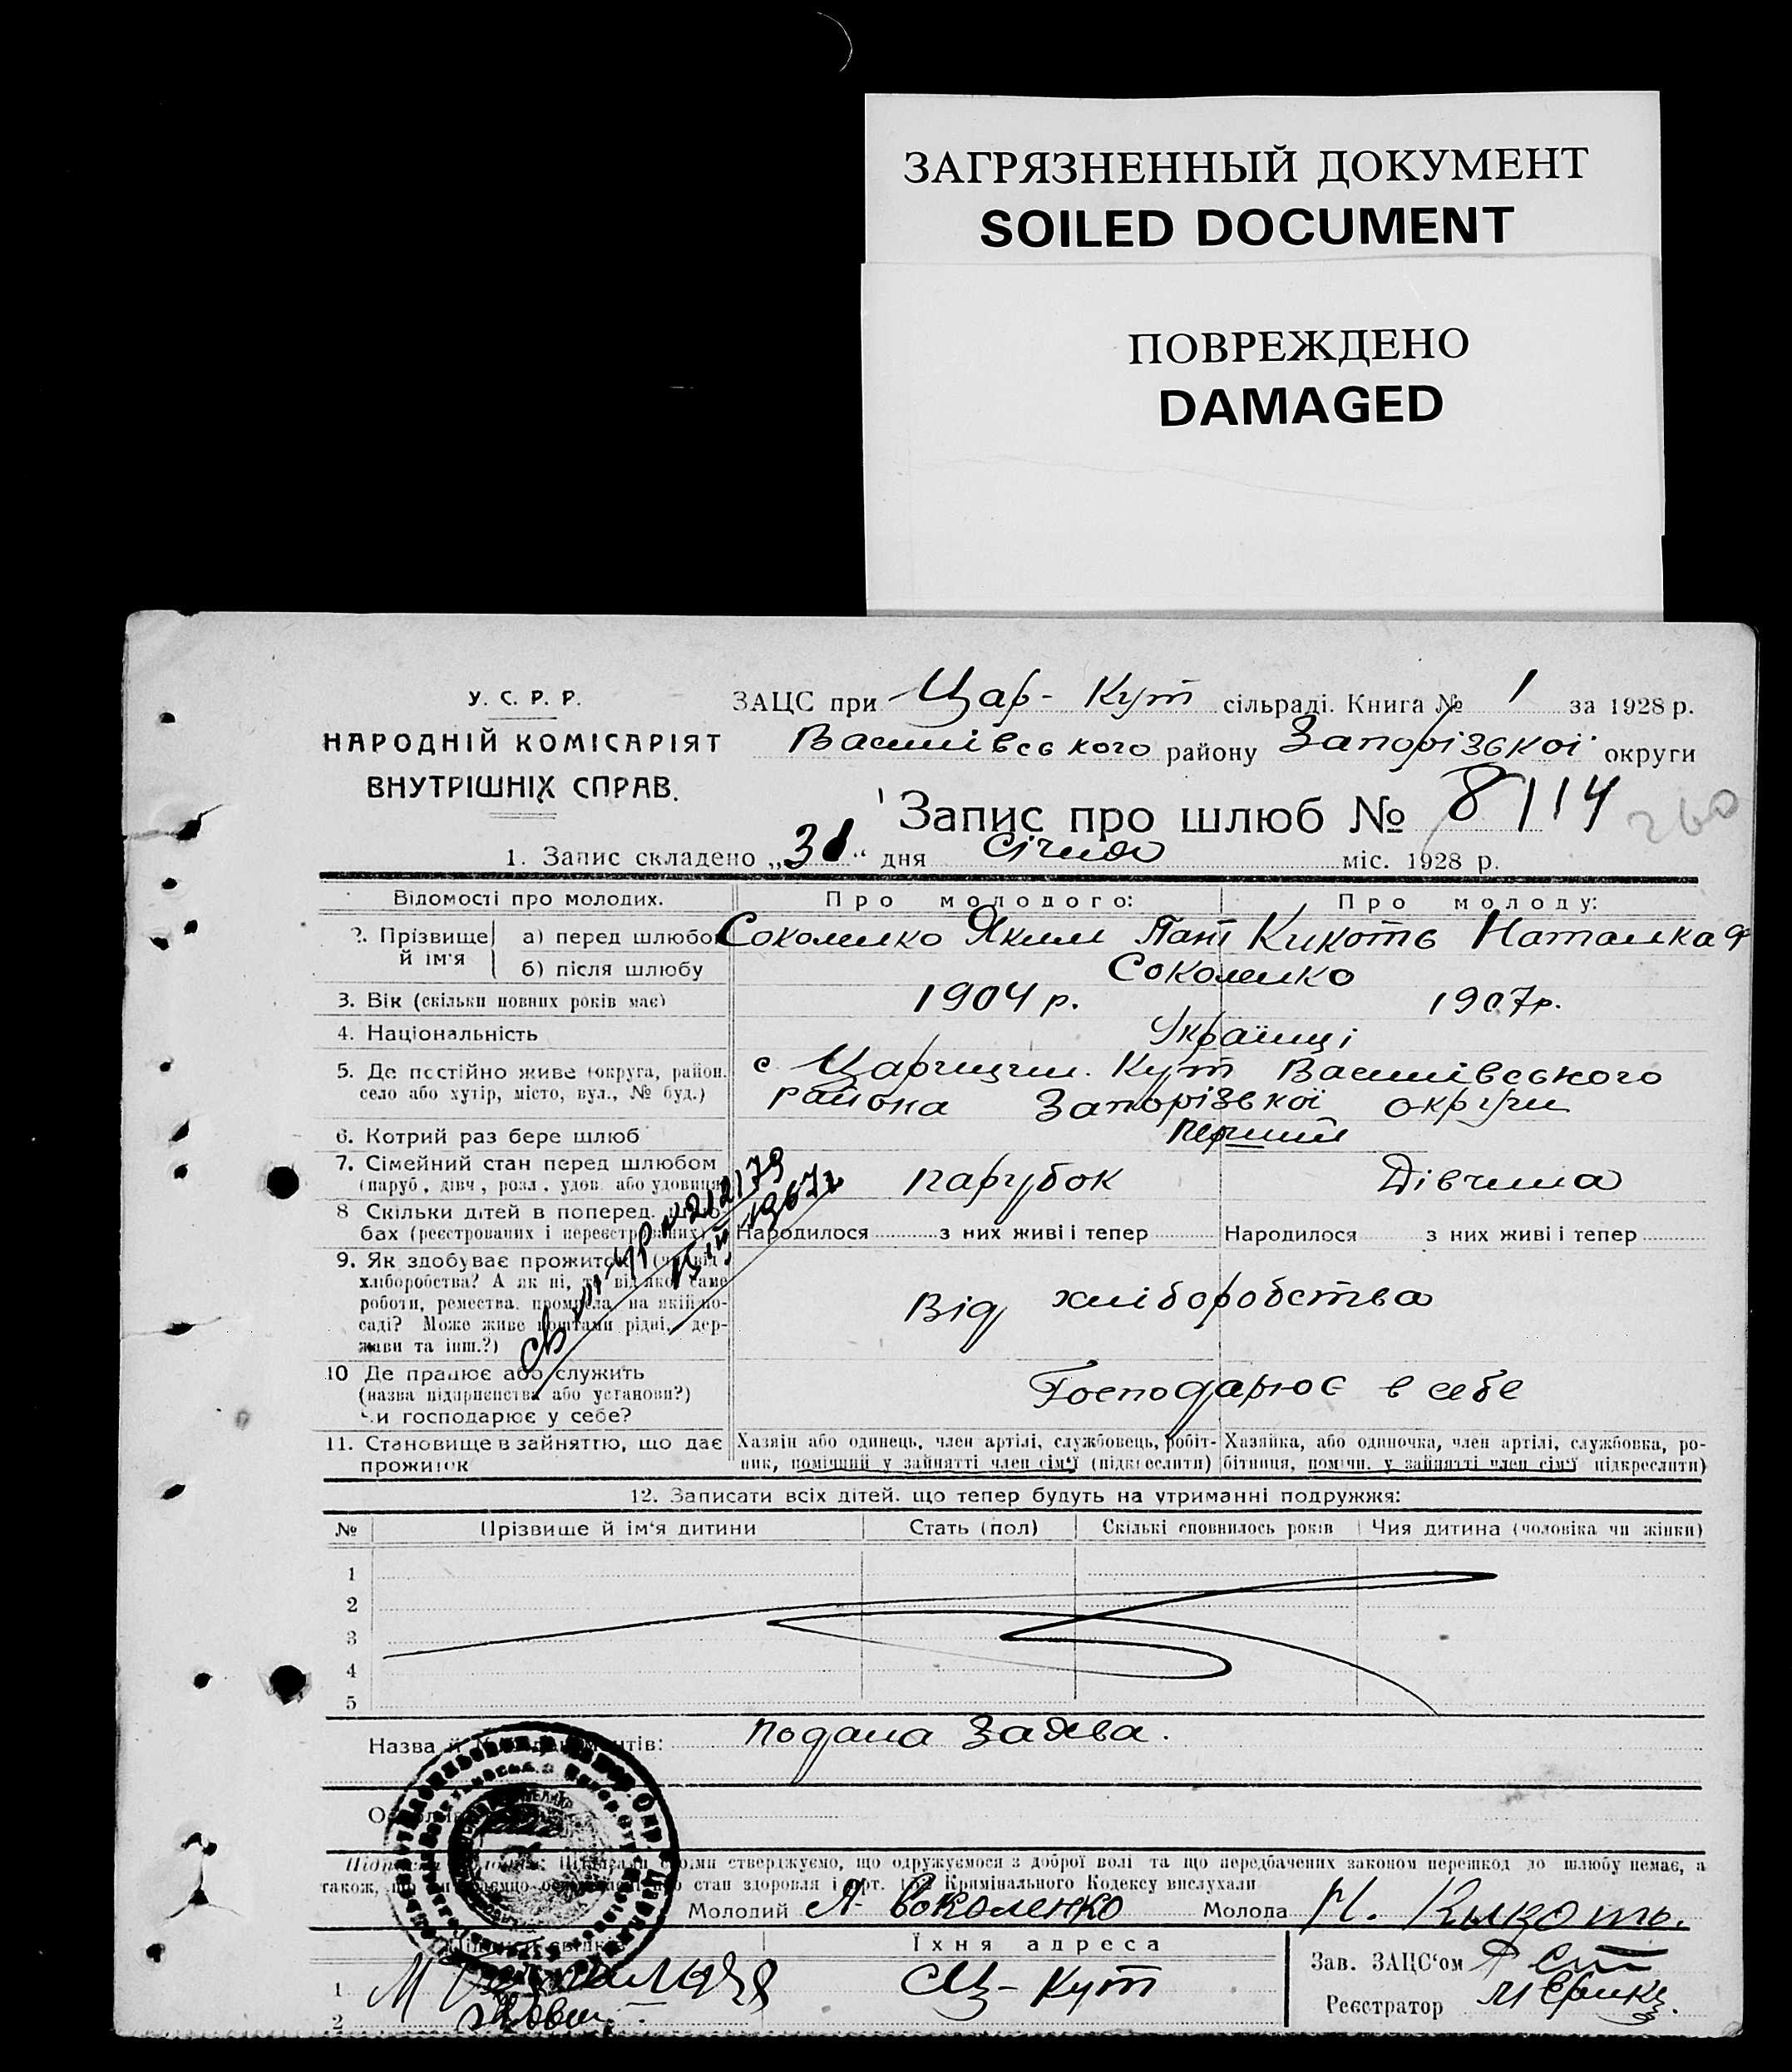 ЗАГРЯЗНЕННЫЙ ДОКУМЕНТ
SOILED DOCUMENT
ПОВРЕЖДЕНО
DAMAGED
У. С. Р. Р.
НАРОДНІЙ КОМІСАРІЯТ
ВНУТРІШНІХ СПРАВ.
ЗАЦС при Цар-Кут сільраді. Книга № 1 за 1928 р.
Василівського району Запорізької округи
Запис про шлюб № 8/14
260
1. Запис складено „31“ дня січня міс. 1928 р.
Відомості про молодих. Про молодого: Про молоду:
2. Прізвище й ім'я а) перед шлюбом Соколенко Яким Пант Кикоть Наталка Ф
б) після шлюбу Соколенко
3. Вік (скільки повних років має) 1904 р. 1907 р.
4. Національність Українці
5. Де постійно живе (округа, район, село або хутір, місто, вул., № буд.) с Царицин. Кут Василівського
района Запорізької округи
6. Котрий раз бере шлюб перший
7. Сімейний стан перед шлюбом парубок Дівчина
(паруб., дівч., розл., удов. або удовиця)
8 Скільки дітей в поперед. шлюбах (реєстрованих і нереєстрованих) Народилося з них живі і тепер Народилося з них живі і тепер
9. Як здобуває прожиток (чи від
хліборобства? А як ні, то від якої саме
роботи, ремества, промисла, на якій по-
саді? Може живе коштами рідні, дер-
жави та інш.?) Від хліборобства
10 Де працює або служить
(назва підприємства або установи?)
Чи господарює у себе? Господарює в себе
11. Становище в зайняттю, що дає прожиток
Хазяїн або одинець, член артілі, службовець, робіт-
ник, помічний у зайнятті член сім'ї (підкреслити)
Хазяйка, або одиночка, член артілі, службовка, ро-
бітниця, помічн. у зайнятті член сім'ї підкреслити)
12. Записати всіх дітей, що тепер будуть на утриманні подружжя:
№ Прізвище й ім'я дитини Стать (пол) Скількі сповнилось років Чия дитина (чоловіка чи жінки)
1
2
3
4
5
Назва й документів: подана заява.
стверджуємо, що одружуємося з доброї волі та що передбачених законом перешкод до шлюбу немає, а
також, що стан здоровля і арт. Кримінального Кодексу вислухали
Молодий Я. Соколенко Молода Н. Кикоть.
Їхня адреса
1 Ц-Кут
2
Зав. ЗАЦС'ом
Реєстратор